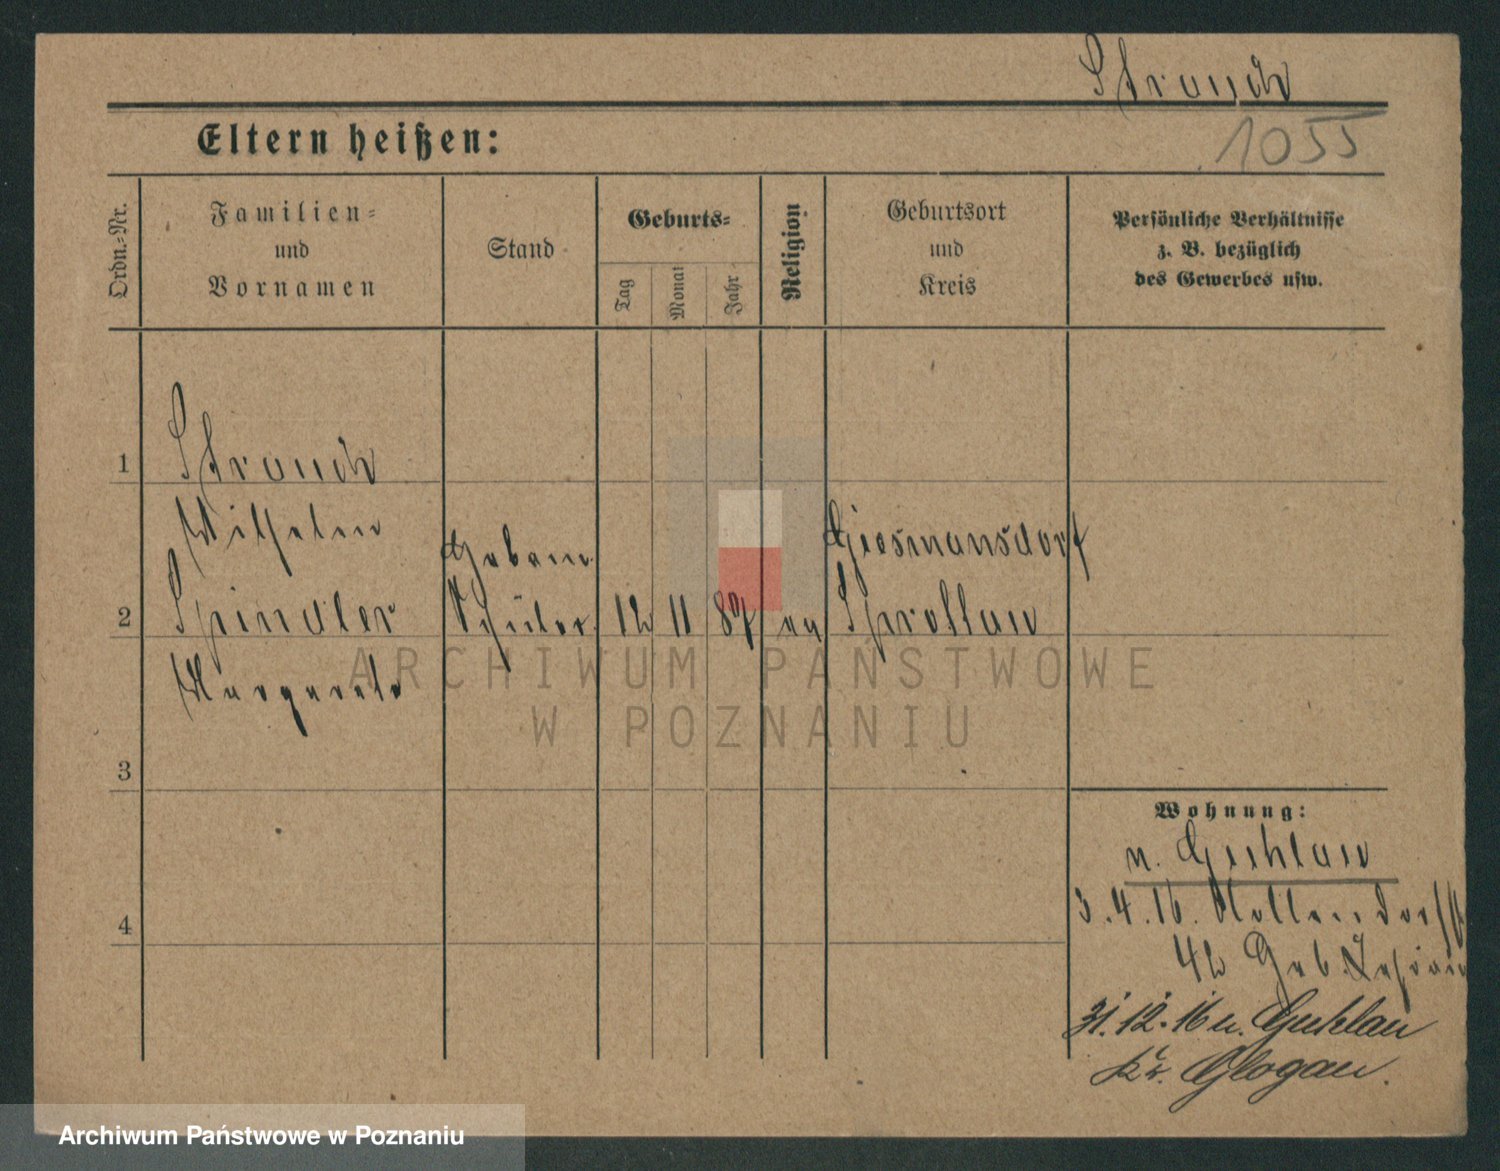 Strauch
1055
Eltern heißen:
Ordn.-Nr.
Familien-
und
Vornamen
Stand
Geburts-
Tag
Monat
Jahr
Religion
Geburtsort
und
Kreis
Persönliche Verhältnisse
z. B. bezüglich
des Gewerbes usw.
1
Strauch
Wilhelm
2
Spindler
Margarete
Hebam
Schüler.
12 11 87
Giesmansdorf
Sprottau
3
4
Wohnung:
n. Guhlau
3.4.16.
42
31.12.16 n. Guhlau
Kr. Glogau.
ARCHIWUM PAŃSTWOWE
W POZNANIU
Archiwum Państwowe w Poznaniu